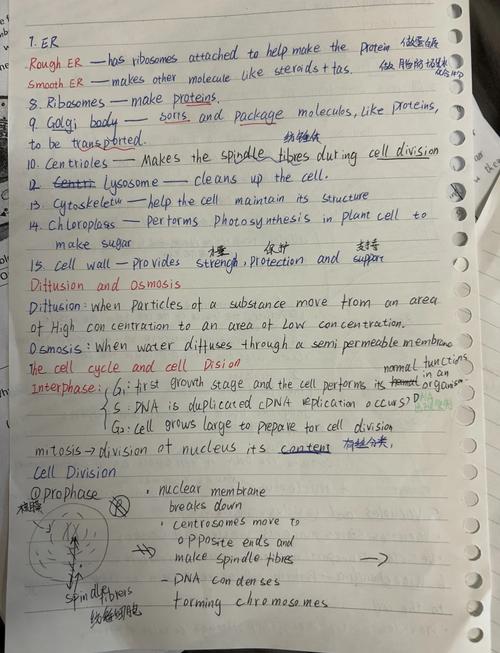 7. ER
Rough ER — has ribosomes attached to help make the protein 做蛋白质
Smooth ER — makes other molecule like steroids + fas. 做脂肪
8. Ribosomes — make proteins.
9. Golgi body — sorts and package moleculos, Like proteins,
to be transported.
10. Centrioles — Makes the spindle fibres during cell division
12. Centri Lysosome — cleans up the cell.
13. Cytoskeletn — help the cell maintain its structure
14. Chloroplass — Performs Photosynthesis in plant cell to
make sugar
15. Cell wall — Provides strength, protection and support
保护 支持
Diffusion and Osmosis
Diffusion: When Particles of a substance move from an area
of High concentration to an area of Low concentration.
Osmosis: When water diffuses through a semi permeable membrane
The cell cycle and cell Dision
normal functions
Interphase: G₁: first growth stage and the cell performs its in an organism
S: DNA is duplicated (DNA replication occurs) DNA
G₂: cell grows large to prepare for cell division
mitosis → division of nucleus its content 有丝分裂,
Cell Division
① prophase
核膜
spindle fibrers
· nuclear membrane
breaks down
· centrosomes move to
opposite ends and
make spindle fibres
- DNA condenses
forming chromosomes